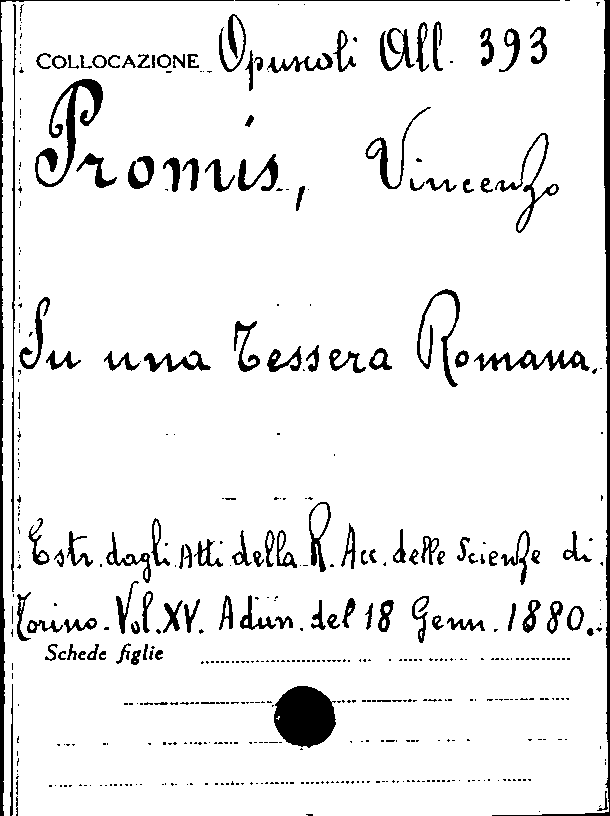 COLLOCAZIONE Opuscoli All. 393
Promis, Vincenzo
Su una Tessera Romana.
Estr. dagli Atti della R. Acc. delle Scienze di
Torino. Vol. XV. Adun. del 18 Genn. 1880.
Schede figlie